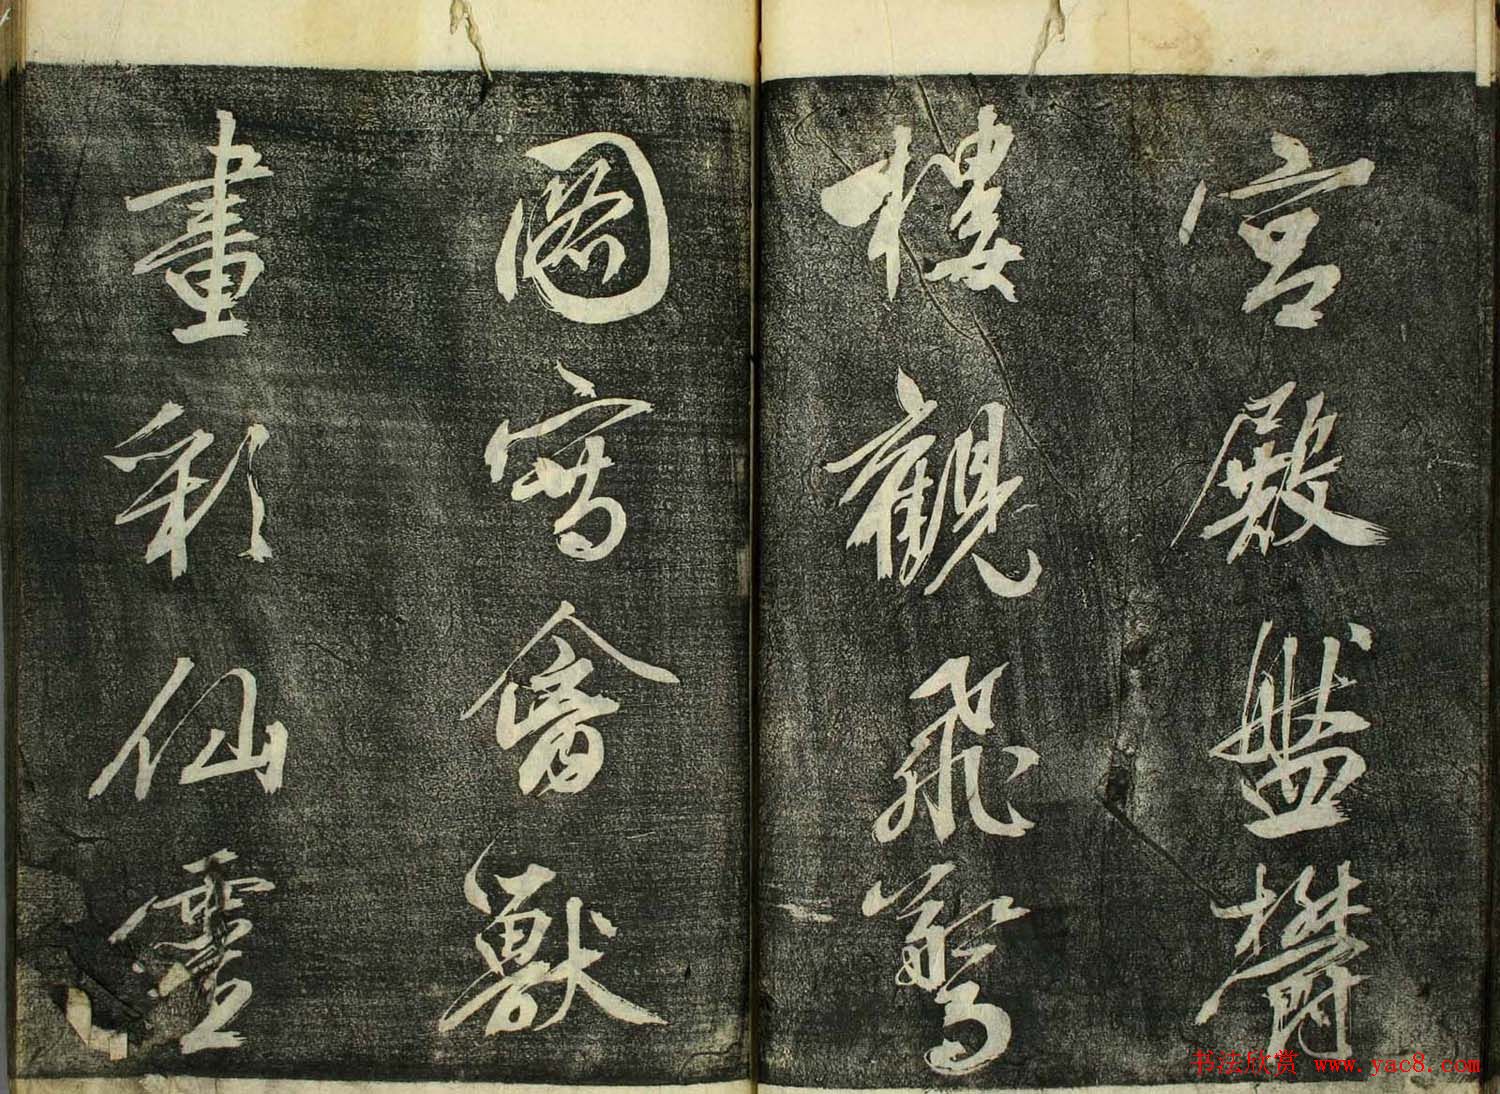 宮殿盤欝
樓觀飛驚
圖寫禽獸
畫彩仙靈
书法欣赏 www.yac8.com